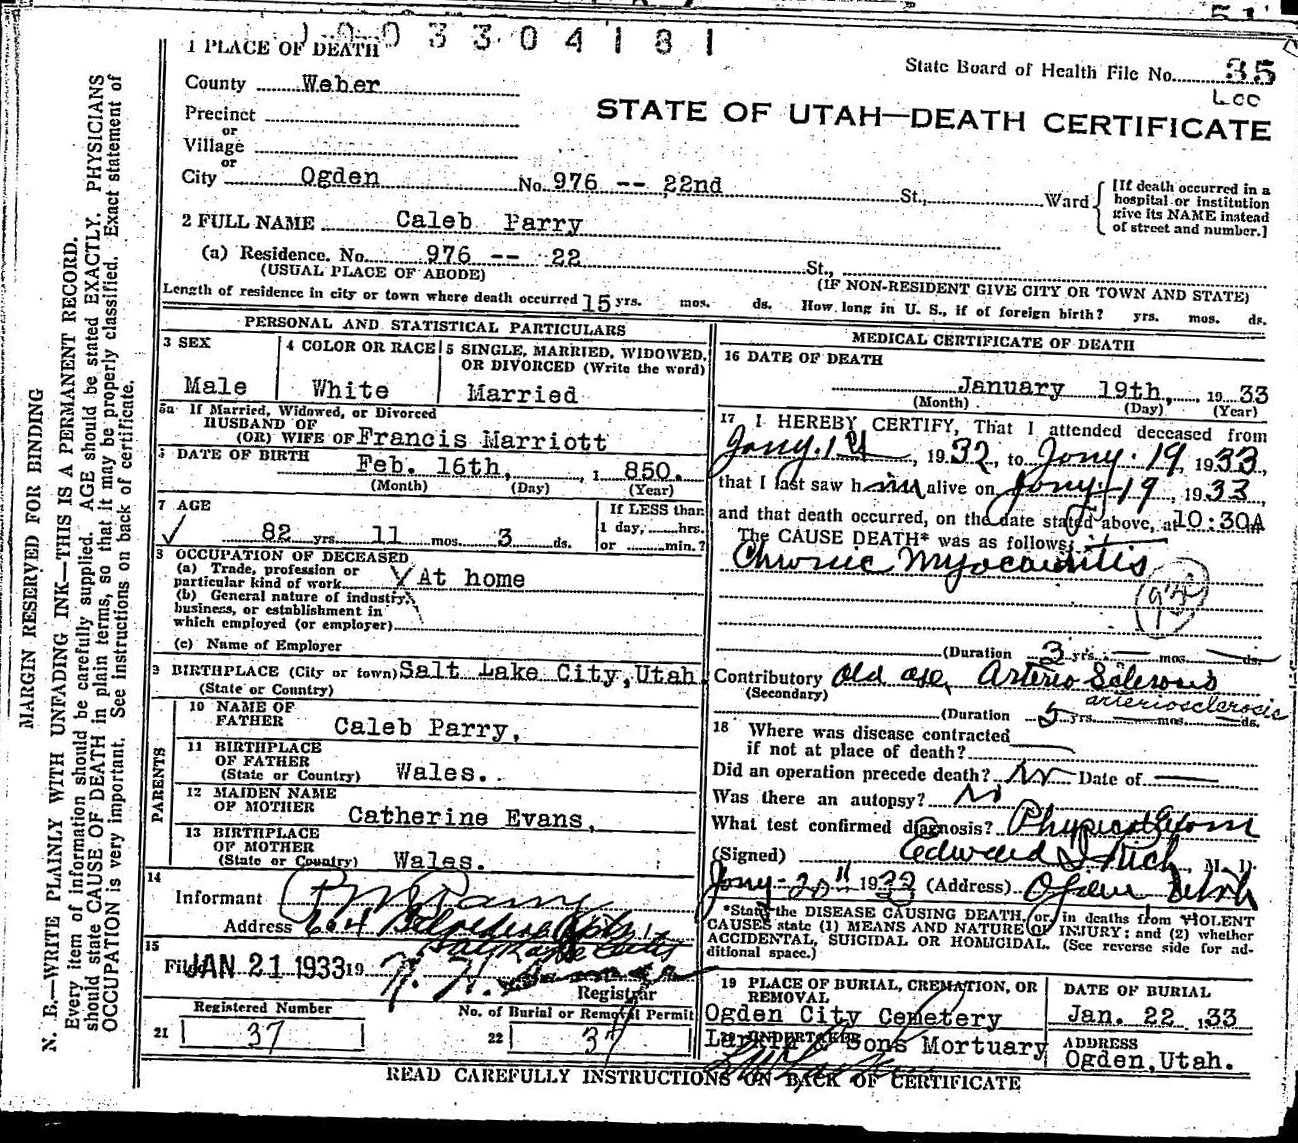 1003304181
1 PLACE OF DEATH
State Board of Health File No. 35
County Weber
STATE OF UTAH—DEATH CERTIFICATE
Precinct
or
Village
or
City Ogden No. 976 -- 22nd St., Ward
[If death occurred in a
hospital or institution
give its NAME instead
of street and number.]
2 FULL NAME Caleb Parry
(a) Residence. No. 976 -- 22 St.,
(USUAL PLACE OF ABODE) (IF NON-RESIDENT GIVE CITY OR TOWN AND STATE)
Length of residence in city or town where death occurred 15 yrs. mos. ds. How long in U. S., if of foreign birth? yrs. mos. ds.
PERSONAL AND STATISTICAL PARTICULARS
3 SEX
Male
4 COLOR OR RACE
White
5 SINGLE, MARRIED, WIDOWED,
OR DIVORCED (Write the word)
Married
5a If Married, Widowed, or Divorced
HUSBAND OF
(OR) WIFE OF Francis Marriott
6 DATE OF BIRTH Feb. 16th, 1 850.
(Month) (Day) (Year)
7 AGE
82 yrs. 11 mos. 3 ds.
If LESS than
1 day, hrs.
or min.?
8 OCCUPATION OF DECEASED
(a) Trade, profession or
particular kind of work At home
(b) General nature of industry,
business, or establishment in
which employed (or employer)
(c) Name of Employer
9 BIRTHPLACE (City or town) Salt Lake City, Utah
(State or Country)
PARENTS
10 NAME OF
FATHER Caleb Parry,
11 BIRTHPLACE
OF FATHER
(State or Country) Wales.
12 MAIDEN NAME
OF MOTHER Catherine Evans,
13 BIRTHPLACE
OF MOTHER
(State or Country) Wales.
14
Informant Parry
Address 604 Belvedere Apts
Salt Lake City
15
Filed JAN 21 1933 19
Registrar
Registered Number
21 37
No. of Burial or Removal Permit
22 37
MEDICAL CERTIFICATE OF DEATH
16 DATE OF DEATH
January 19th, 19 33
(Month) (Day) (Year)
17 I HEREBY CERTIFY, That I attended deceased from
Jany. 1st, 1932, to Jany. 19, 1933,
that I last saw him alive on Jany. 19, 1933,
and that death occurred, on the date stated above, at 10:30A
The CAUSE DEATH* was as follows:
Chronic Myocarditis
(Duration 3 yrs. mos. ds.
Contributory Old age, Arterio Sclerosis
(Secondary) arteriosclerosis
(Duration 5 yrs. mos. ds.
18 Where was disease contracted
if not at place of death?
Did an operation precede death? No Date of
Was there an autopsy? No
What test confirmed diagnosis? Physical Exam
(Signed) Edward I Rich M. D.
Jany 20th 1933 (Address) Ogden Utah
*State the DISEASE CAUSING DEATH, or, in deaths from VIOLENT
CAUSES state (1) MEANS AND NATURE OF INJURY; and (2) whether
ACCIDENTAL, SUICIDAL OR HOMICIDAL. (See reverse side for ad-
ditional space.)
19 PLACE OF BURIAL, CREMATION, OR
REMOVAL
Ogden City Cemetery
DATE OF BURIAL
Jan. 22 , 33
20 UNDERTAKER
Larkin & Sons Mortuary
ADDRESS
Ogden, Utah.
READ CAREFULLY INSTRUCTIONS ON BACK OF CERTIFICATE
MARGIN RESERVED FOR BINDING
N. B.—WRITE PLAINLY WITH UNFADING INK—THIS IS A PERMANENT RECORD.
Every item of information should be carefully supplied. AGE should be stated EXACTLY. PHYSICIANS
should state CAUSE OF DEATH in plain terms, so that it may be properly classified. Exact statement of
OCCUPATION is very important. See instructions on back of certificate.